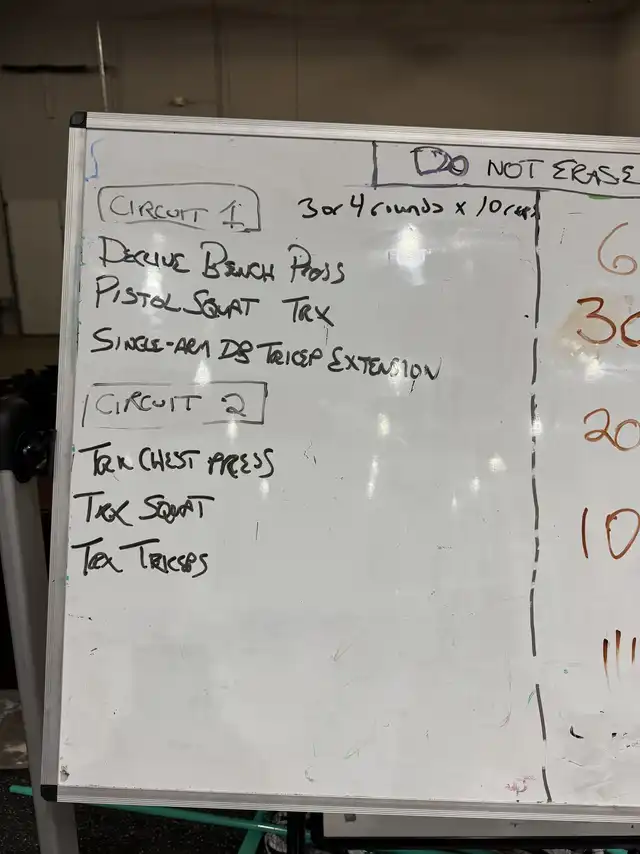 DO NOT ERASE
CIRCUIT 1
3 or 4 rounds x 10 reps
DECLINE BENCH PRESS
PISTOL SQUAT TRX
SINGLE-ARM DB TRICEP EXTENSION
CIRCUIT 2
TRX CHEST PRESS
TRX SQUAT
TRX TRICEPS
6
30
20
10